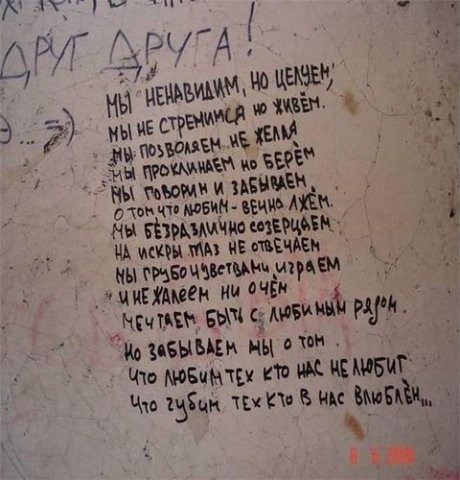 ДРУГ ДРУГА!
... =)
МЫ НЕНАВИДИМ, НО ЦЕЛУЕМ,
МЫ НЕ СТРЕМИМСЯ НО ЖИВЁМ.
МЫ ПОЗВОЛЯЕМ, НЕ ЖЕЛАЯ
МЫ ПРОКЛИНАЕМ НО БЕРЁМ
МЫ ГОВОРИМ И ЗАБЫВАЕМ
О ТОМ ЧТО ЛЮБИМ - ВЕЧНО ЛЖЁМ.
МЫ БЕЗРАЗЛИЧНО СОЗЕРЦАЕМ
НА ИСКРЫ ГЛАЗ НЕ ОТВЕЧАЕМ
МЫ ГРУБО ЧУВСТВАМИ ИГРАЕМ
И НЕ ЖАЛЕЕМ НИ О ЧЁМ
МЕЧТАЕМ БЫТЬ С ЛЮБИМЫМ РЯДОМ.
НО ЗАБЫВАЕМ МЫ О ТОМ
ЧТО ЛЮБИМ ТЕХ КТО НАС НЕ ЛЮБИТ
ЧТО ГУБИМ ТЕХ КТО В НАС ВЛЮБЛЁН...